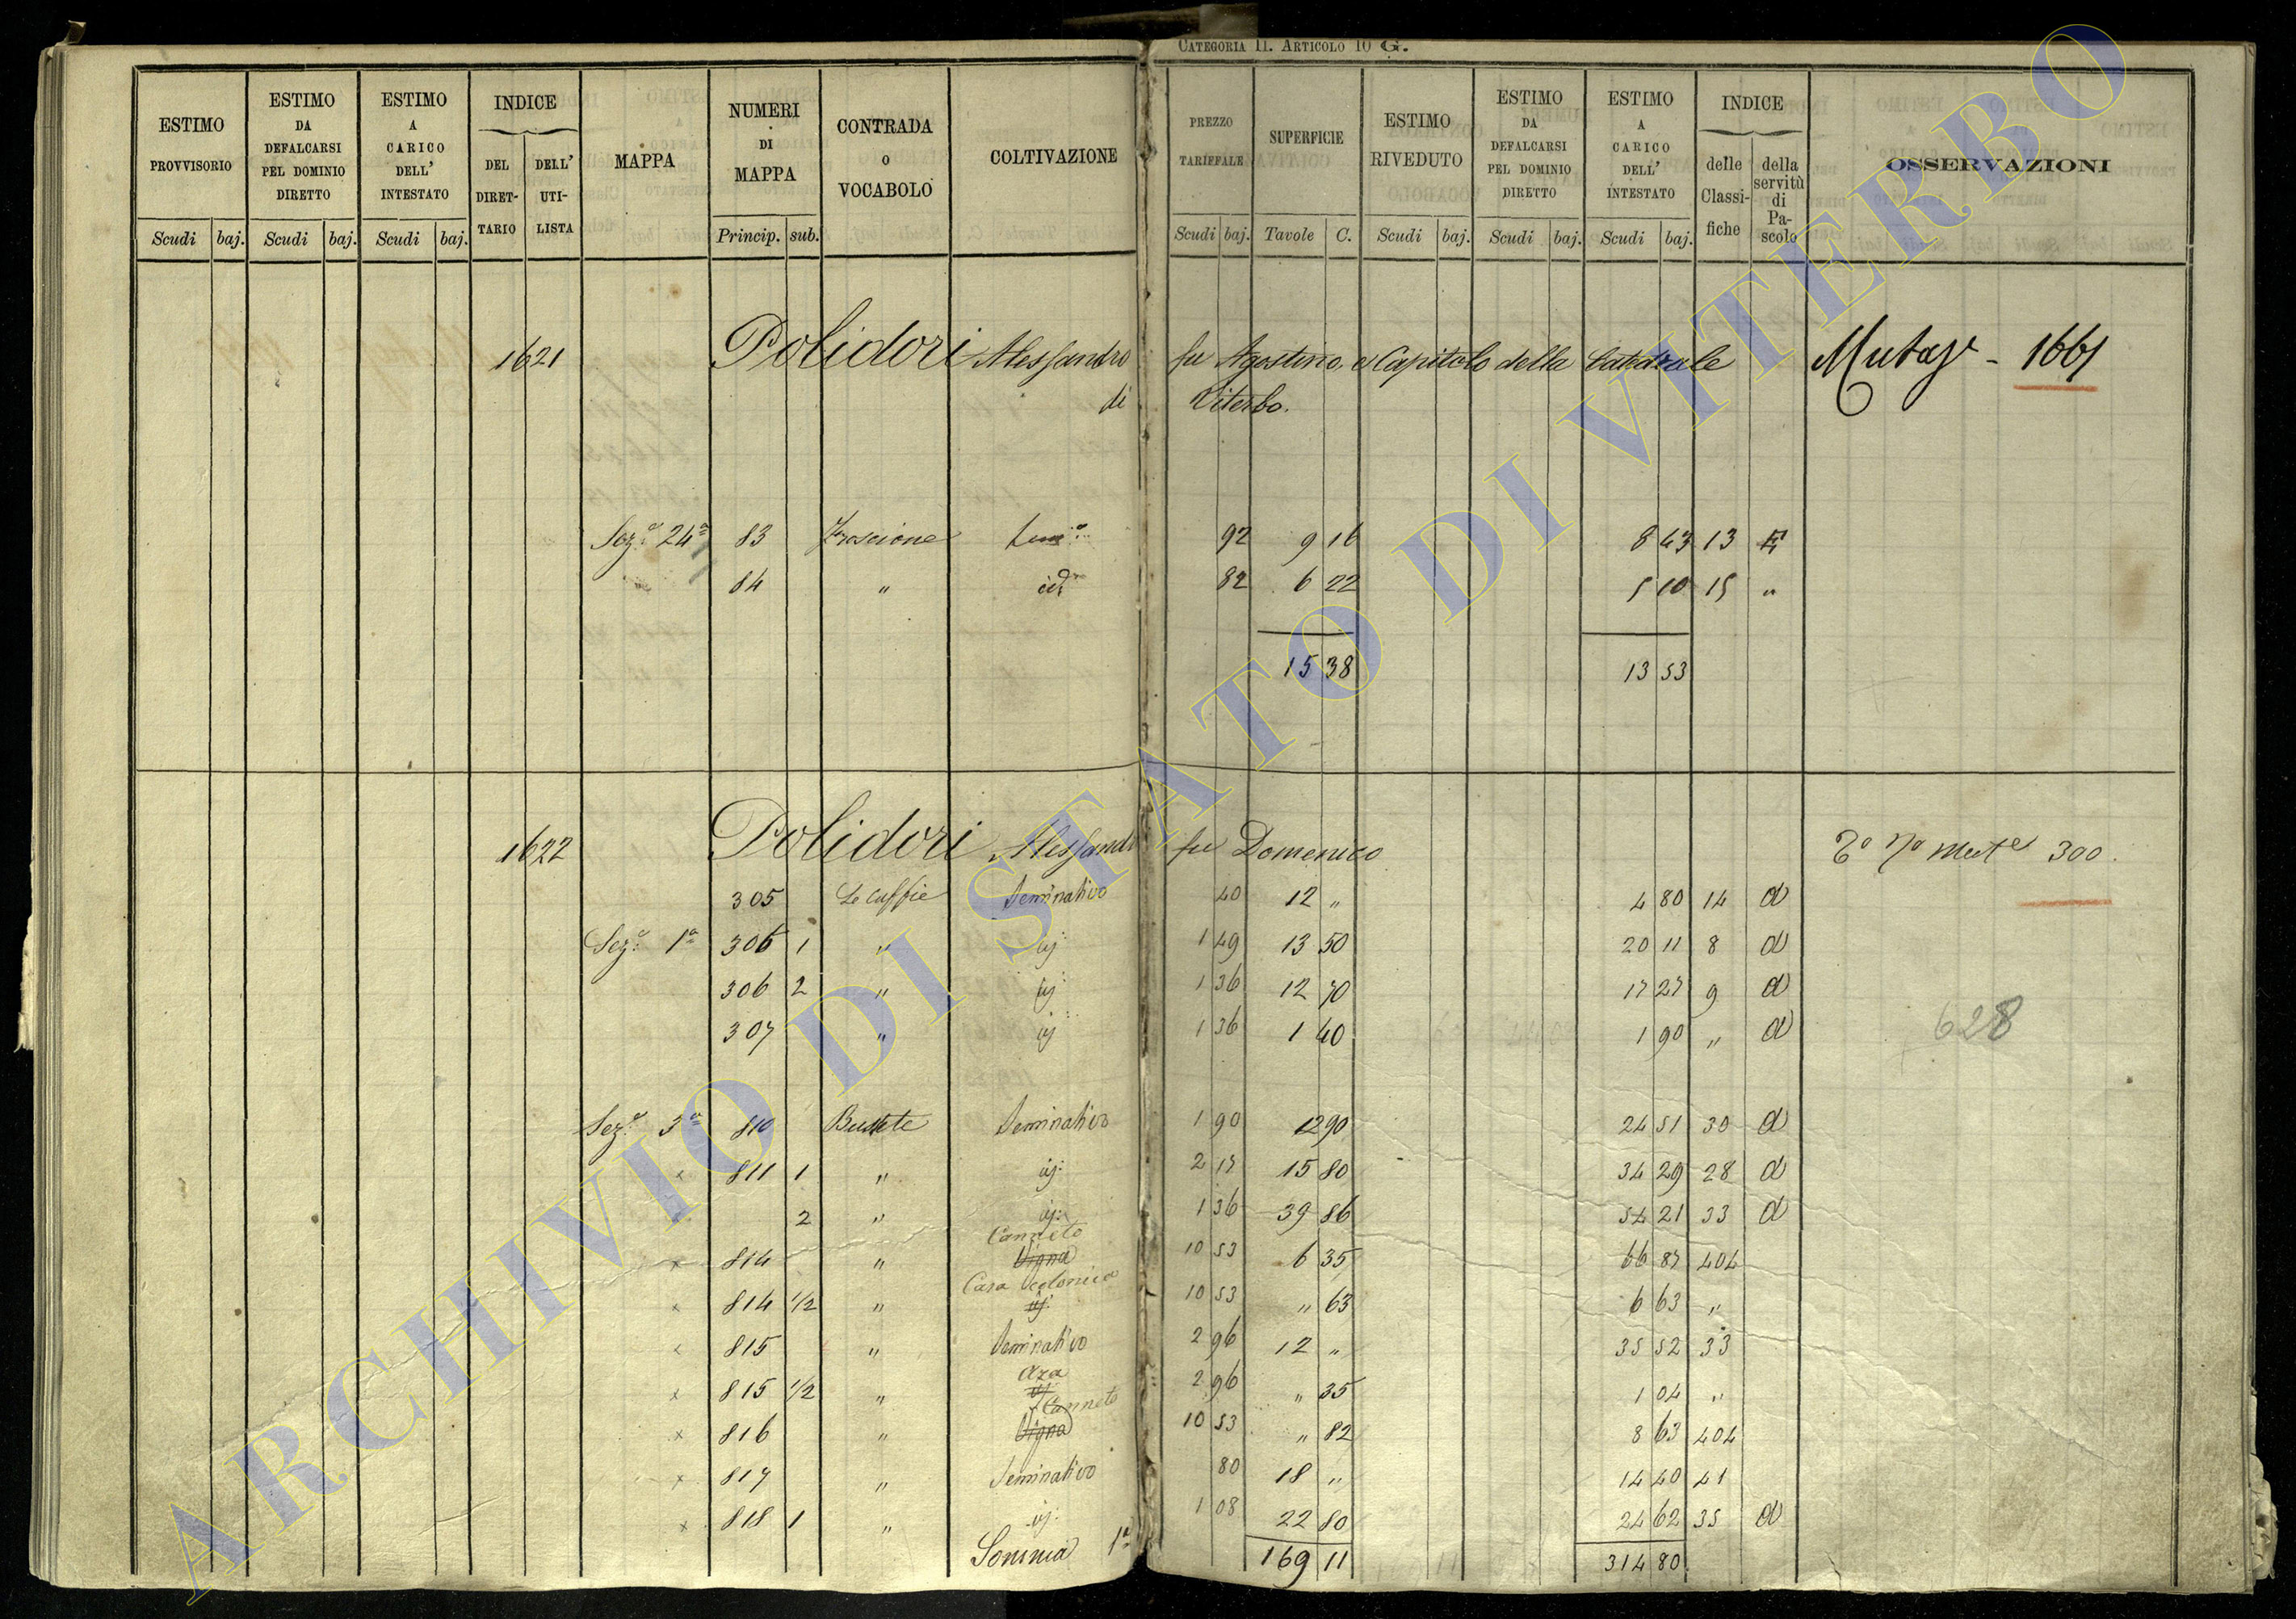 CATEGORIA II. ARTICOLO 10 G.
ESTIMO PROVVISORIO Scudi baj.
ESTIMO DA DEFALCARSI PEL DOMINIO DIRETTO Scudi baj.
ESTIMO A CARICO DELL' INTESTATO Scudi baj.
INDICE DEL DIRET-TARIO DELL' UTI-LISTA
MAPPA
NUMERI DI MAPPA Princip. sub.
CONTRADA O VOCABOLO
COLTIVAZIONE
PREZZO TARIFFALE Scudi baj.
SUPERFICIE Tavole C.
ESTIMO RIVEDUTO Scudi baj.
ESTIMO DA DEFALCARSI PEL DOMINIO DIRETTO Scudi baj.
ESTIMO A CARICO DELL' INTESTATO Scudi baj.
INDICE delle Classi-fiche della servitù di Pa-scolo
OSSERVAZIONI
1621 Polidori Alessandro fu Agostino, e Capitolo della Catedrale 1661
di Viterbo.
Sez.e 24a 83 92 9 16 8 43 13
84 " id 82 6 22 5 10 15 "
15 38 13 53
1622 Polidori Alessandro fu Domenico 300.
305 Le Cuffie Seminativo 40 12 " 4 80 14 d
Sez.e 1a 306 1 " id: 1 49 13 50 20 11 8 d
306 2 " id: 1 36 12 70 17 27 9 d
307 " id: 1 36 1 40 1 90 " d
628
Sez.e 3a 810 Bussete Seminativo 1 90 12 90 24 51 30 d
x 811 1 " id: 2 17 15 80 34 29 28 d
x 2 " id: 1 36 39 86 54 21 33 d
Canneto
x 814 " Vigna 10 53 6 35 66 87 404
Casa Colonica
x 814 1/2 " id: 10 53 " 63 6 63 "
x 815 " Seminativo 2 96 12 " 35 52 33
Aza
x 815 1/2 " id: 2 96 " 35 1 04 "
Canneto
x 816 " Vigna 10 53 " 82 8 63 404
x 817 " Seminativo 80 18 " 14 40 41
x 818 1 " id: 1 08 22 80 24 62 35 d
Somma 1a 169 11 314 80
ARCHIVIO DI STATO DI VITERBO